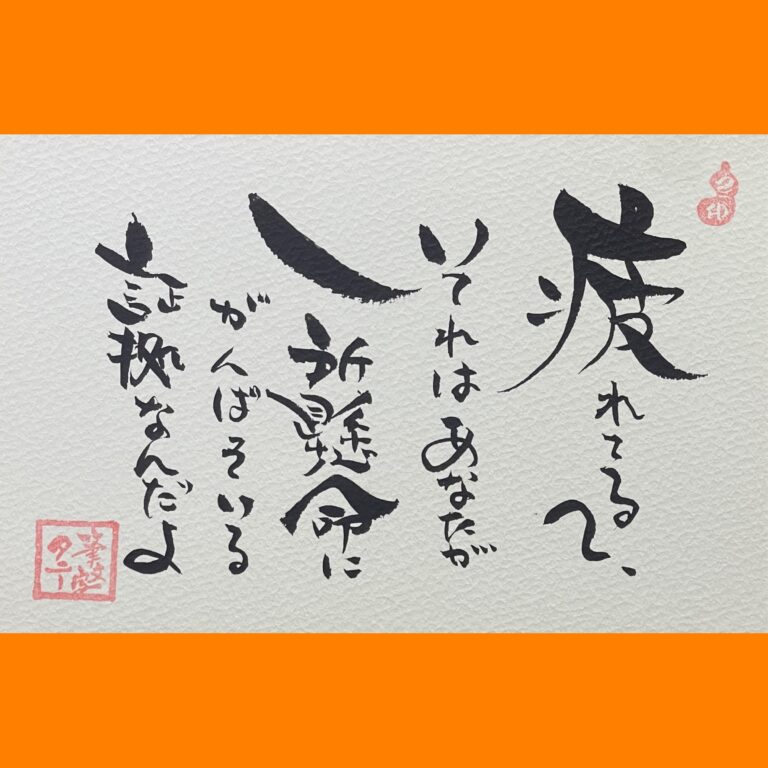 疲れてるって、
それはあなたが
一所懸命に
がんばっている
証拠なんだよ